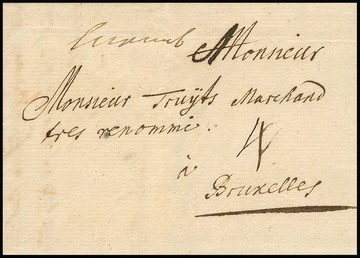 Monsieur
Monsieur Truyts Marchand
tres renommé.
à
Bruxelles